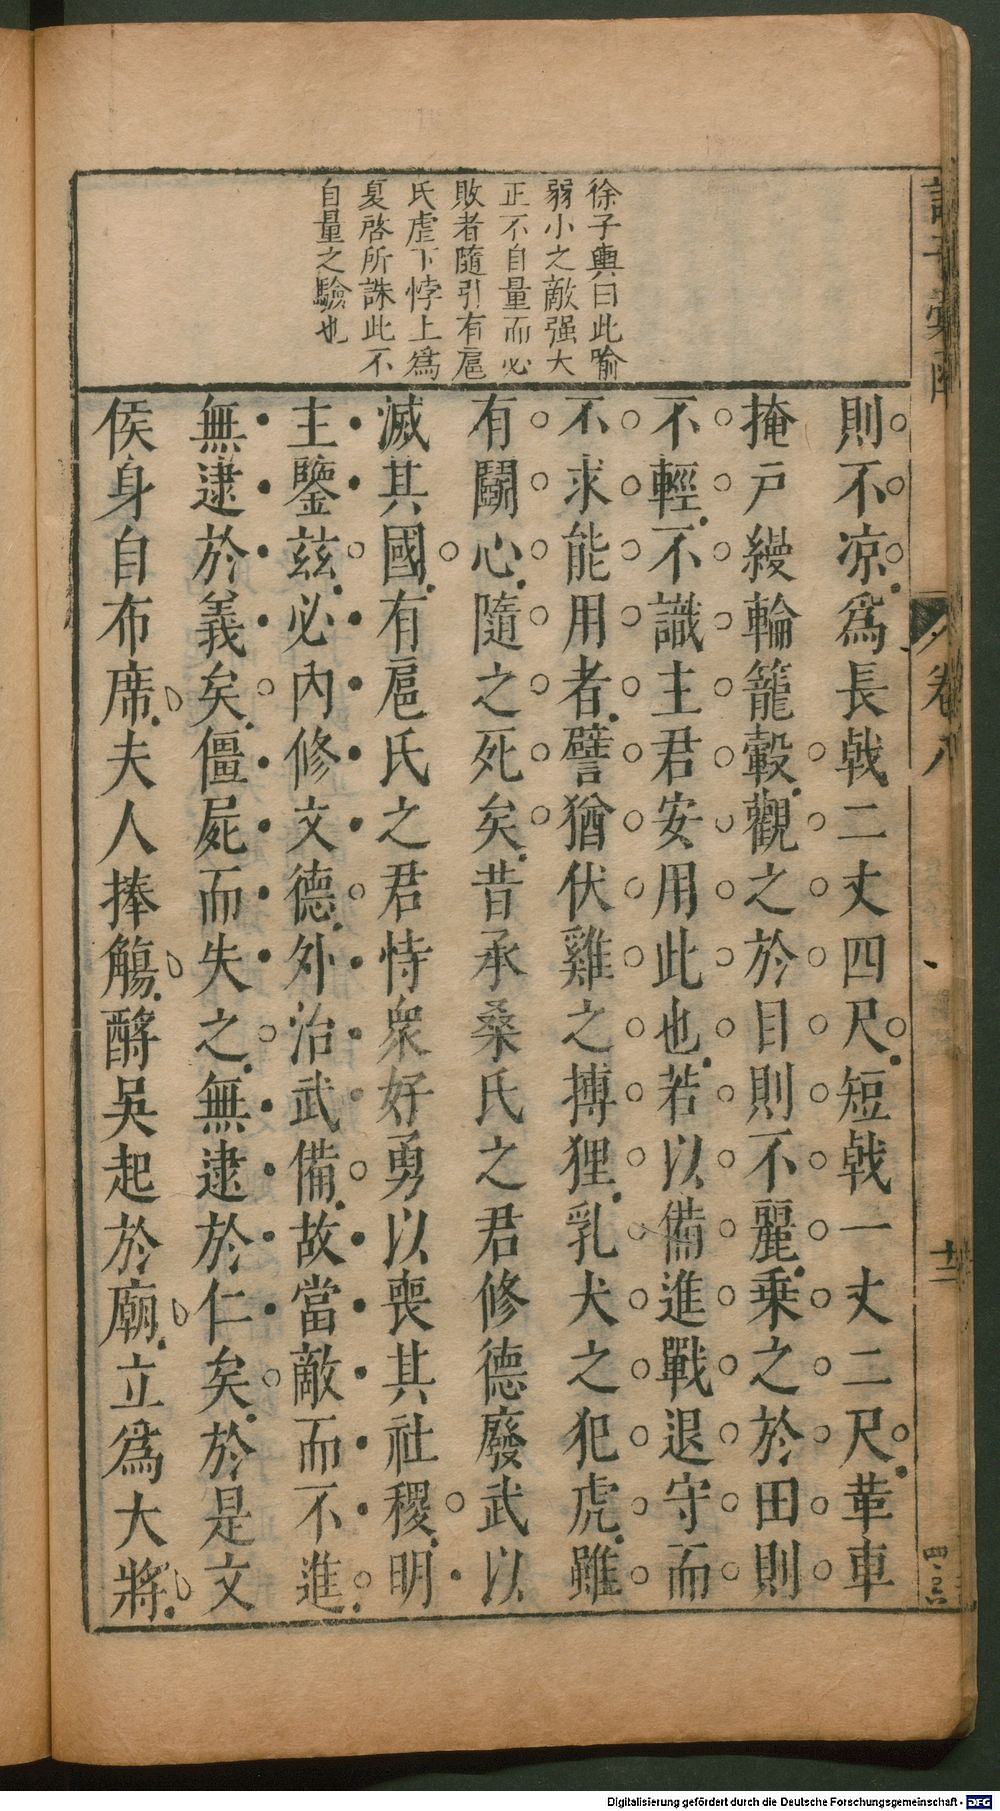 徐子輿曰此喻
弱小之敵强大
正不自量而必
敗者隨引有扈
氏虐下悖上爲
夏啓所誅此不
自量之驗也
則不凉爲長戟二丈四尺短戟一丈二尺革車
掩戸縵輪籠轂觀之於目則不麗乗之於田則
不輕不識主君安用此也若以備進戰退守而
不求能用者譬猶伏雞之搏狸乳犬之犯虎雖
有鬭心隨之死矣昔承桑氏之君修德廢武以
滅其國有扈氏之君恃衆好勇以喪其社稷明
主鑒茲必內修文德外治武備故當敵而不進
無逮於義矣僵屍而失之無逮於仁矣於是文
侯身自布席夫人捧觴醮吳起於廟立爲大將
卷八
十二
Digitalisierung gefördert durch die Deutsche Forschungsgemeinschaft - DFG